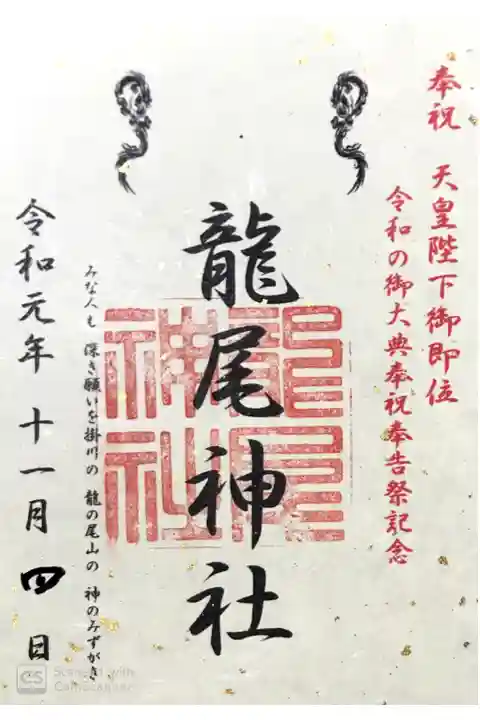 奉祝　天皇陛下御即位
令和の御大典奉祝奉告祭記念
龍尾神社
龍尾神社
みな人も　深き願いを掛川の　龍の尾山の　神のみずがき
令和元年　十一月　四　日
CS Scanned with
CamScanner